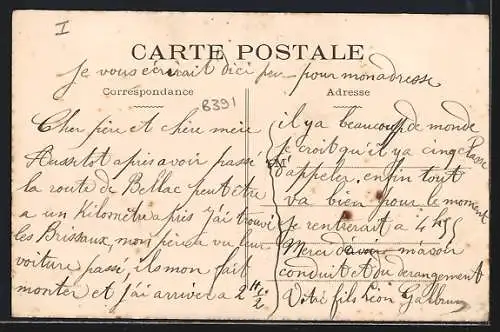 I
CARTE POSTALE
je vous écrirait dici peu pour mon adresse
Correspondance
B391
Adresse
Cher père et chère mère
Aussitot apis avoir passé
la route de Bellac peut être
a un Kilomètre apris j'ai trouvé
les Brissaux, mon pèrsa vu leur
voiture passé, ils mon fait
monter et j'ai arriver a 2 H 1/2
il y a beaucoup de monde
je croit qu'il ya cinq classe
d'appeler. enfin tout
va bien pour le moment
je rentrerait a 4 hs
Merci d'avoir m'avoir
conduit et du derangement
Votre fils Léon Galbrun